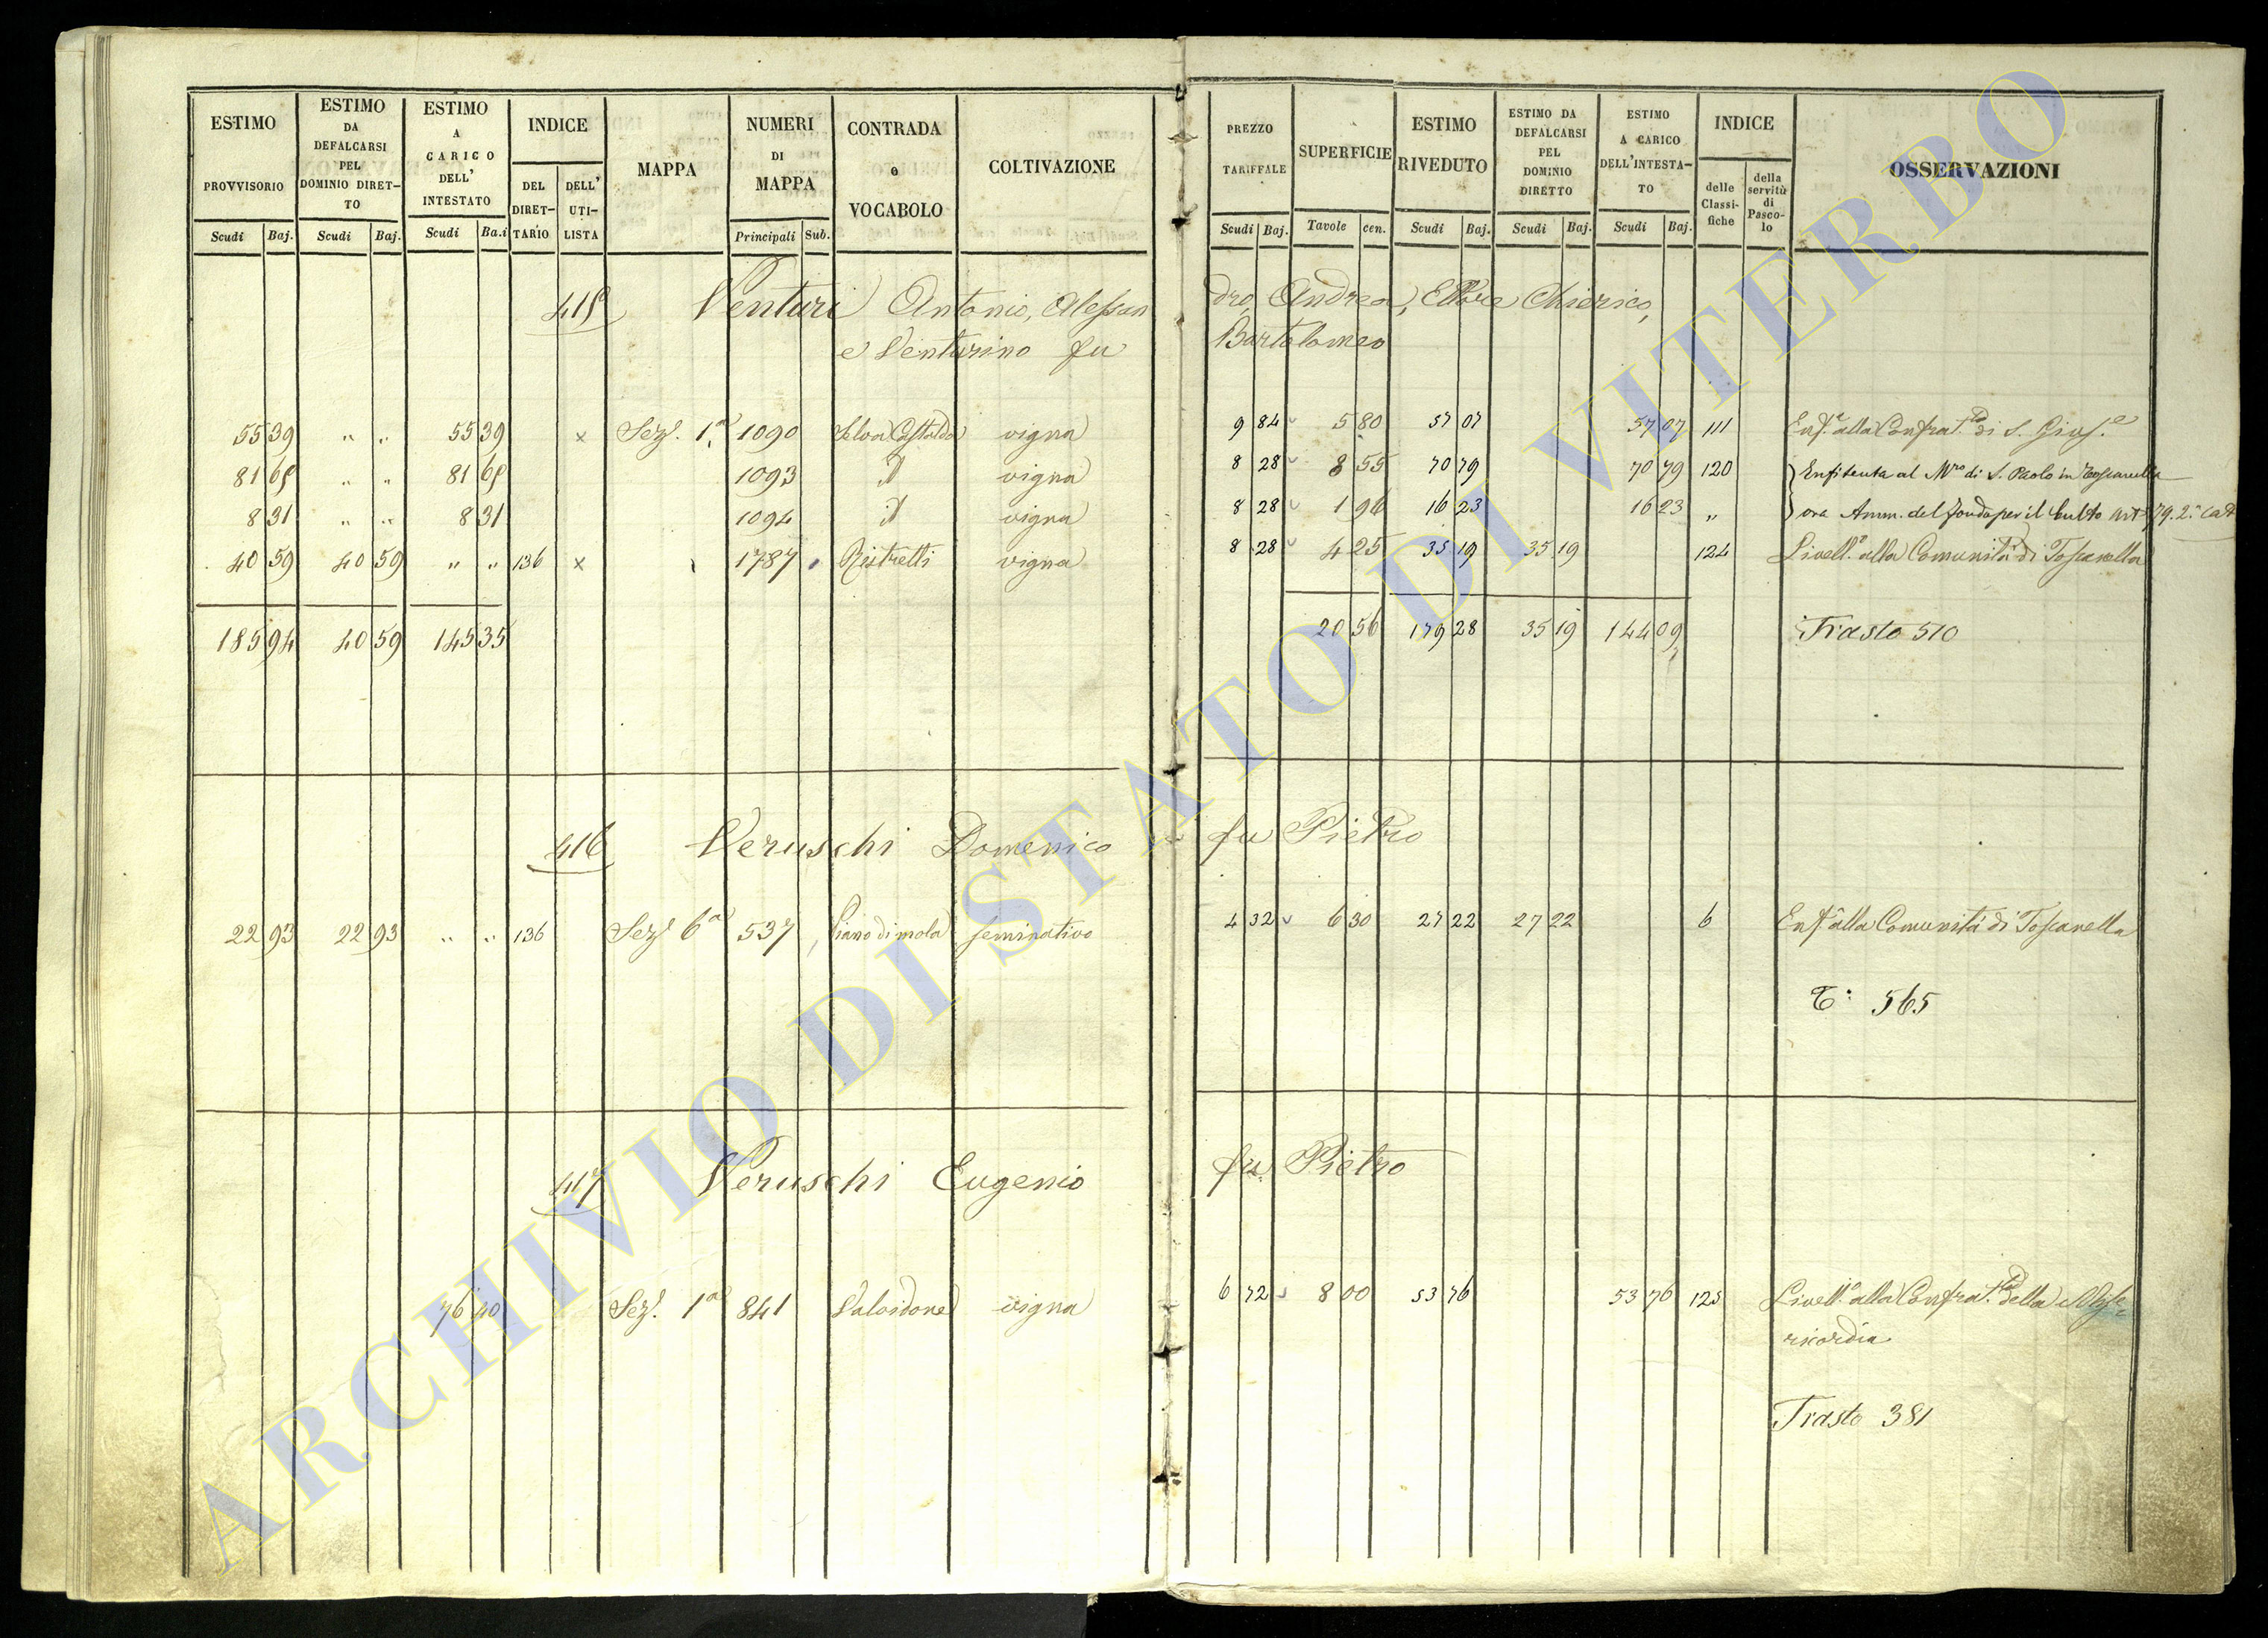 ESTIMO PROVVISORIO
ESTIMO DA DEFALCARSI PEL DOMINIO DIRET-TO
ESTIMO A CARICO DELL' INTESTATO
INDICE
DEL DIRET-TARIO
DELL' UTI-LISTA
MAPPA
NUMERI DI MAPPA
CONTRADA o VOCABOLO
COLTIVAZIONE
PREZZO TARIFFALE
SUPERFICIE
ESTIMO RIVEDUTO
ESTIMO DA DEFALCARSI PEL DOMINIO DIRETTO
ESTIMO A CARICO DELL'INTESTA-TO
INDICE
delle Classi-fiche
della servitù di Pasco-lo
OSSERVAZIONI
Scudi Baj. Scudi Baj. Scudi Ba.i Principali Sub. Scudi Baj. Tavole cen. Scudi Baj. Scudi Baj. Scudi Baj.
415 Venturi Antonio, Alessan dro, Andrea, Ettore Chierico,
e Venturino fu Bartolomeo
55 39 " " 55 39 x Sez. 1a 1090 Selva Castaldo vigna 9 84 5 80 57 07 57 07 111 Enf. alla Confrat.ta di S. Gius.e
81 65 " " 81 65 1093 id vigna 8 28 8 55 70 79 70 79 120 Enfiteuta al Mro di S. Paolo in Toscanella
8 31 " " 8 31 1094 id vigna 8 28 1 96 16 23 16 23 " ora Amm. del fondo per il Culto Art. 79. 2.° cat
40 59 40 59 " " 136 x 1787 Ristretti vigna 8 28 4 25 35 19 35 19 124 Livell.° alla Comunità di Toscanella
185 94 40 59 145 35 20 56 179 28 35 19 144 09 Trasto 510
416 Veruschi Domenico fu Pietro
22 93 22 93 " " 136 Sez. 6a 537 Piano di mola seminativo 4 32 6 30 27 22 27 22 6 Enf. alla Comunità di Toscanella
T: 565
417 Veruschi Eugenio fu Pietro
76 40 Sez. 1a 841 Valvidone vigna 6 72 8 00 53 76 53 76 125 Livell.° alla Confrat.ta della Mise-
ricordia
Trasto 381
ARCHIVIO DI STATO DI VITERBO